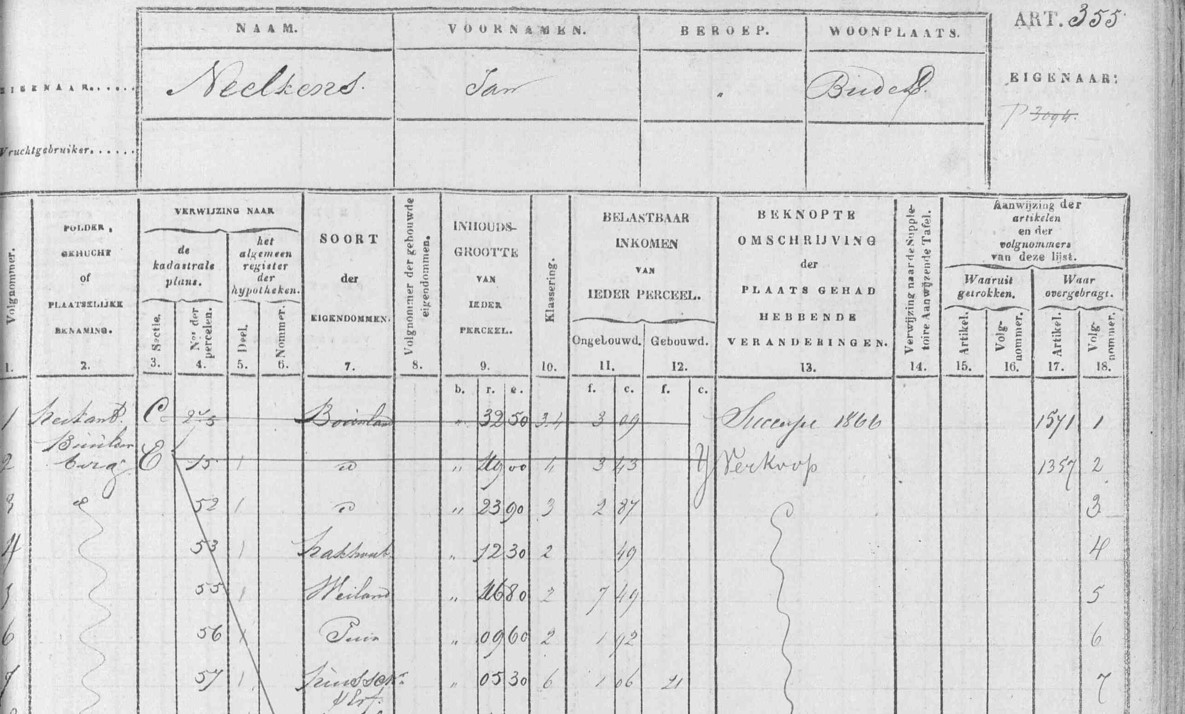 NAAM. VOORNAMEN. BEROEP. WOONPLAATS. ART. 355
EIGENAAR...... Neelkens. Jan " Budel. EIGENAAR:
P 3094.
Vruchtgebruiker......
Volgnummer.
POLDER, GEHUCHT of PLAATSELIJKE BENAMING.
VERWIJZING NAAR
de kadastrale plans.
het algemeen register der hypotheken.
Sectie.
Nos der perceelen.
Deel.
Nommer.
SOORT der EIGENDOMMEN.
Volgnommer der gebouwde eigendommen.
INHOUDS-GROOTTE VAN IEDER PERCEEL.
Klassering.
BELASTBAAR INKOMEN VAN IEDER PERCEEL.
Ongebouwd. Gebouwd.
BEKNOPTE OMSCHRIJVING der PLAATS GEHAD HEBBENDE VERANDERINGEN.
Verwijzing naar de Suppletoire Aanwijzende Tafel.
Aanwijzing der artikelen en der volgnommers van deze lijst.
Waaruit getrokken. Waar overgebragt.
Artikel. Volg-nommer. Artikel. Volg-nommer.
1. 2. 3. 4. 5. 6. 7. 8. 9. 10. 11. 12. 13. 14. 15. 16. 17. 18.
b. r. e. f. c. f. c.
1 C Bouwland " 32 50 3.4 3 09 Successie 1866 1571 1
2 E 15 1 do " 49 00 4 3 43 Verkoop 1357 2
3 do 52 1 do " 23 90 3 2 87 3
4 53 1 hakhout " 12 30 2 49 4
5 55 1 Weiland " 46 80 2 7 49 5
6 56 1 Tuin " 09 60 2 1 92 6
7 57 1 " 05 30 6 1 06 21 7